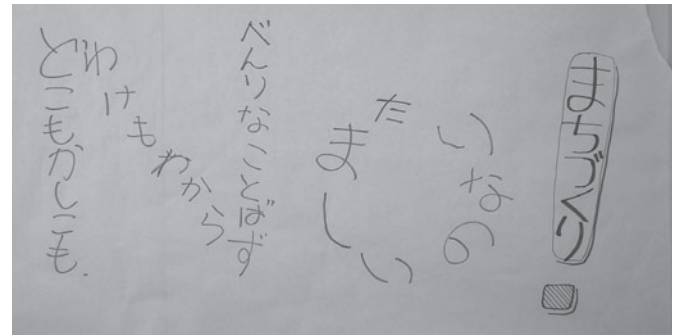 まちづくり
いなの
たましい
べんりなことば
わけもわからず
どこもかしこも.